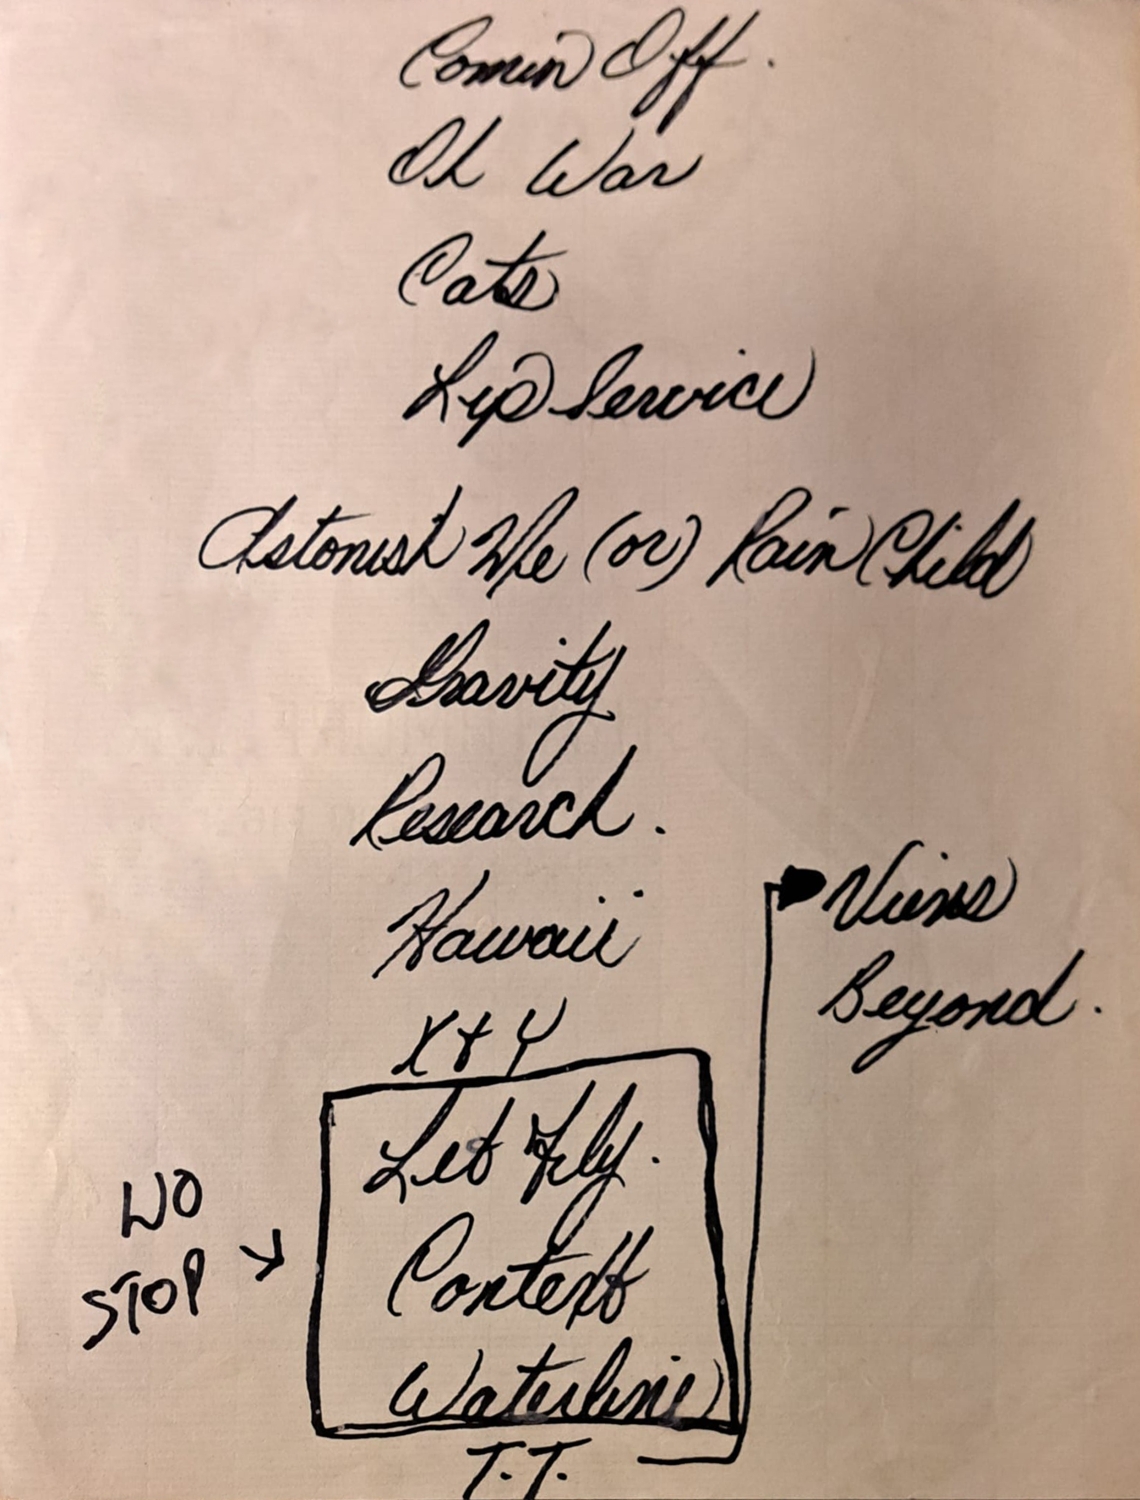 Comin Off.
Oh War
Cats
Lip Service
Astonish Me (or) Rain Child
Gravity
Research.
Hawaii
X + Y
Let Fly.
Context
Waterline
T.T.
NO
STOP
Views
Beyond.